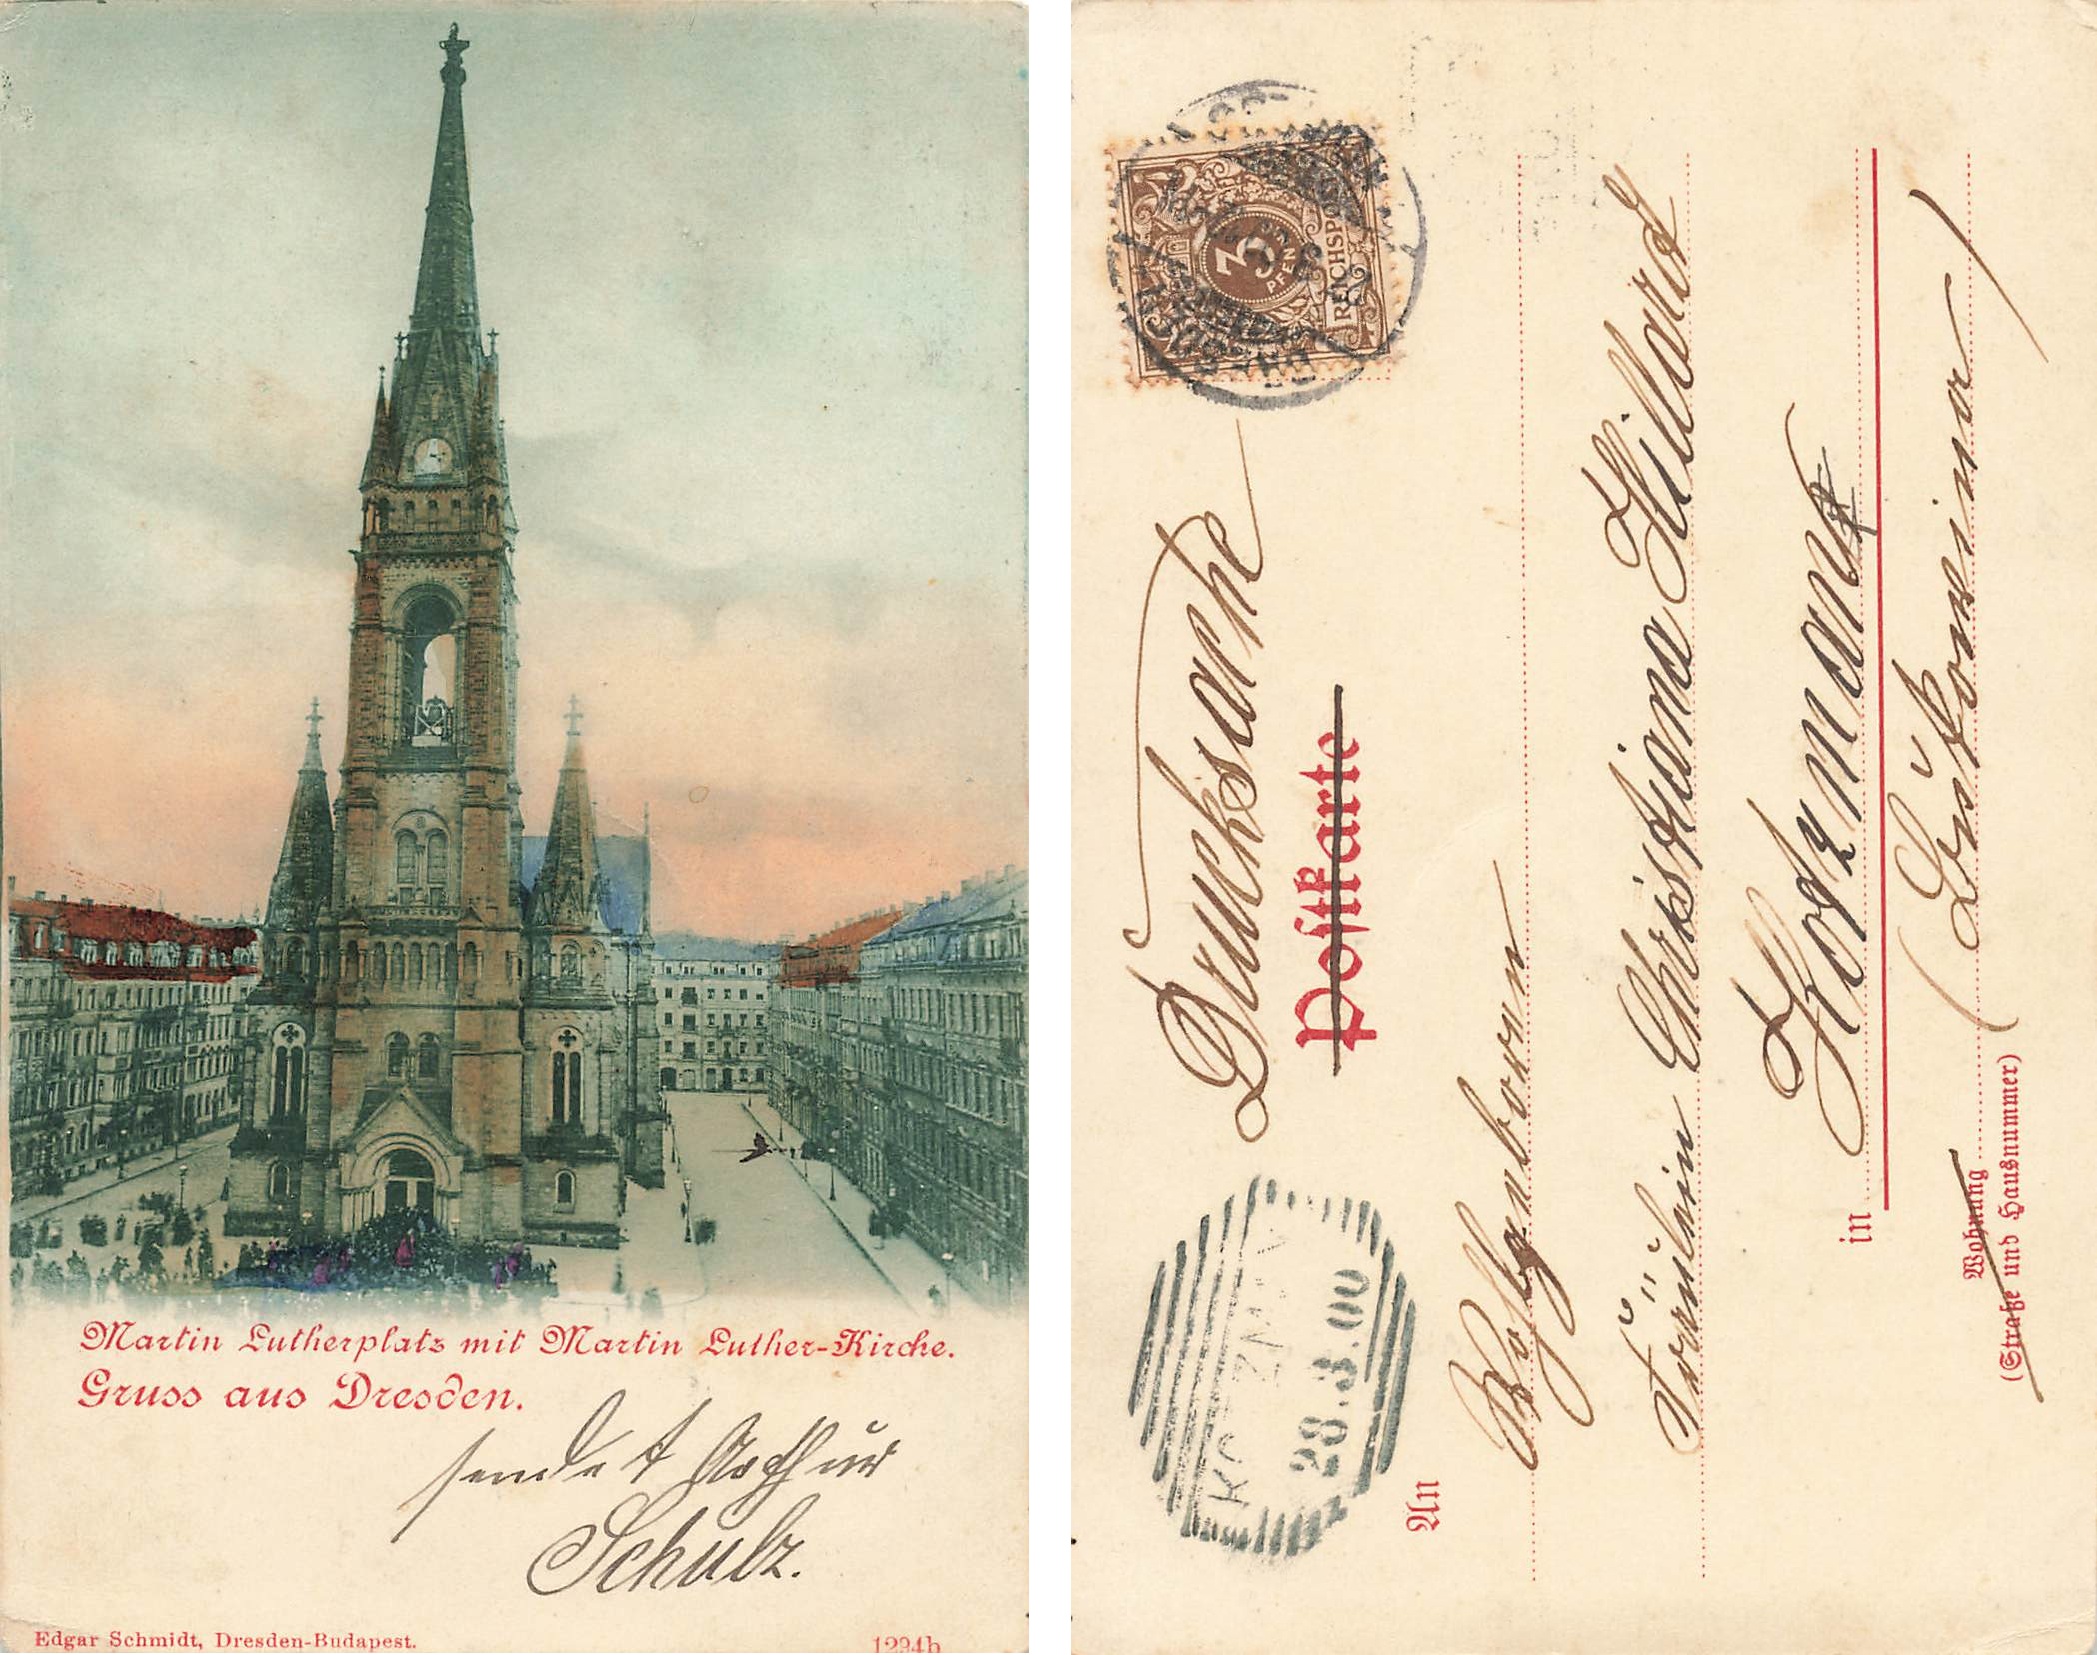 Martin Lutherplatz mit Martin Luther-Kirche.
Gruss aus Dresden.
sendet Arthur
Schulz.
Edgar Schmidt, Dresden-Budapest.
1294b
3
PFENNIG
REICHSPOST
Drucksache
Postkarte
28.3.00
An
Wohlgeboren
Fräulein Christiana Hillard
in Kotzman
(Bukowina)
Wohnung
(Straße und Hausnummer)